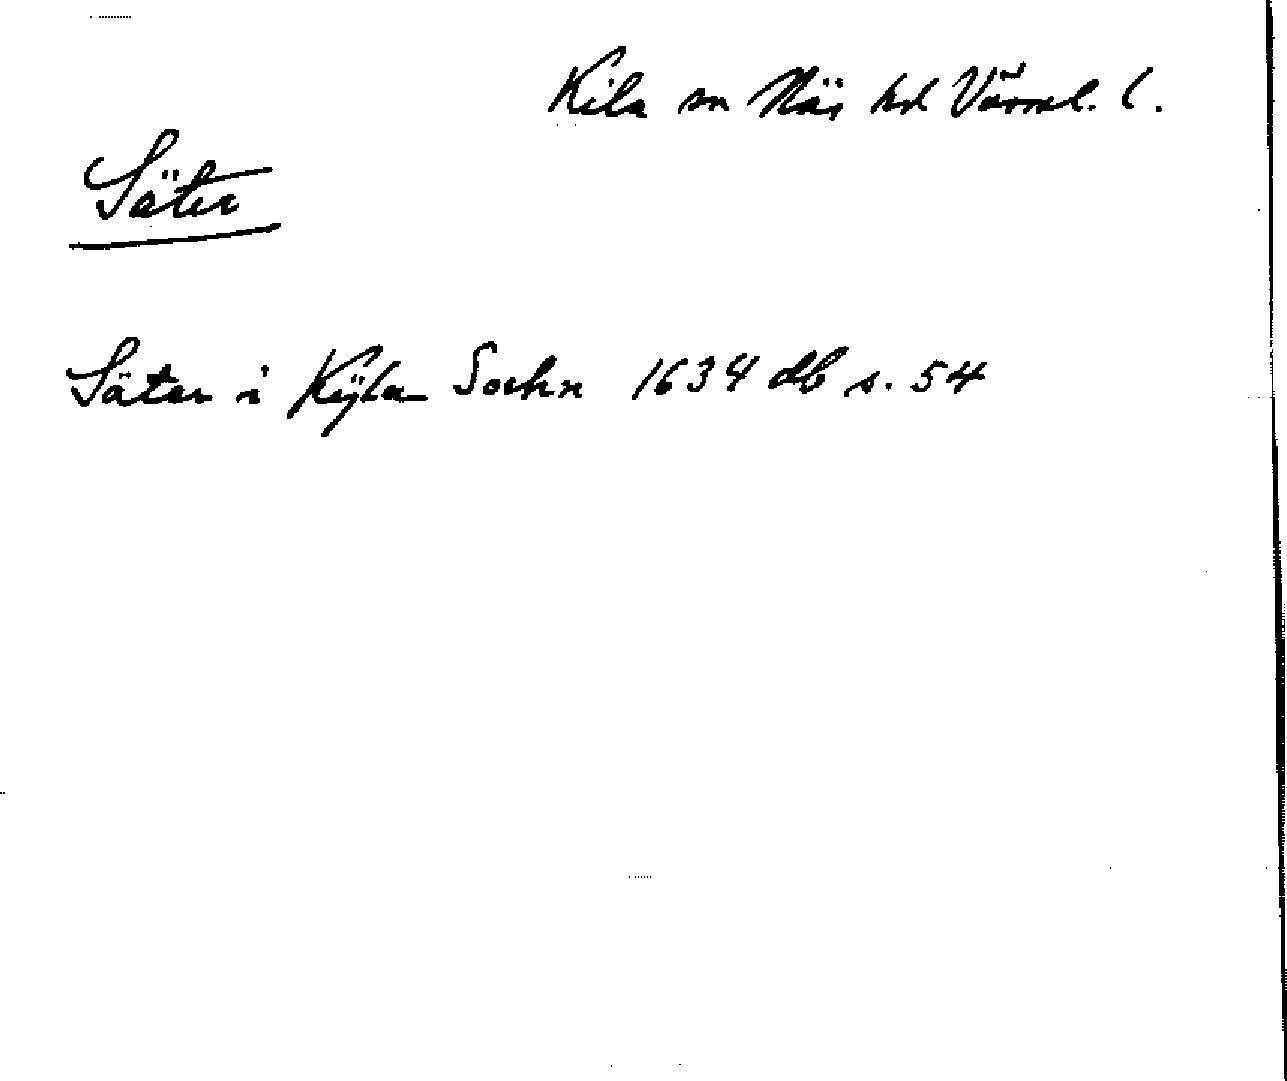 Kila sn Näs hd Värml. l.
Säter
Säter i Kÿla Sochn 1634 db s. 54